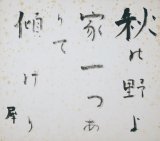 秋の野に
家一つあ
りて
傾けり
犀